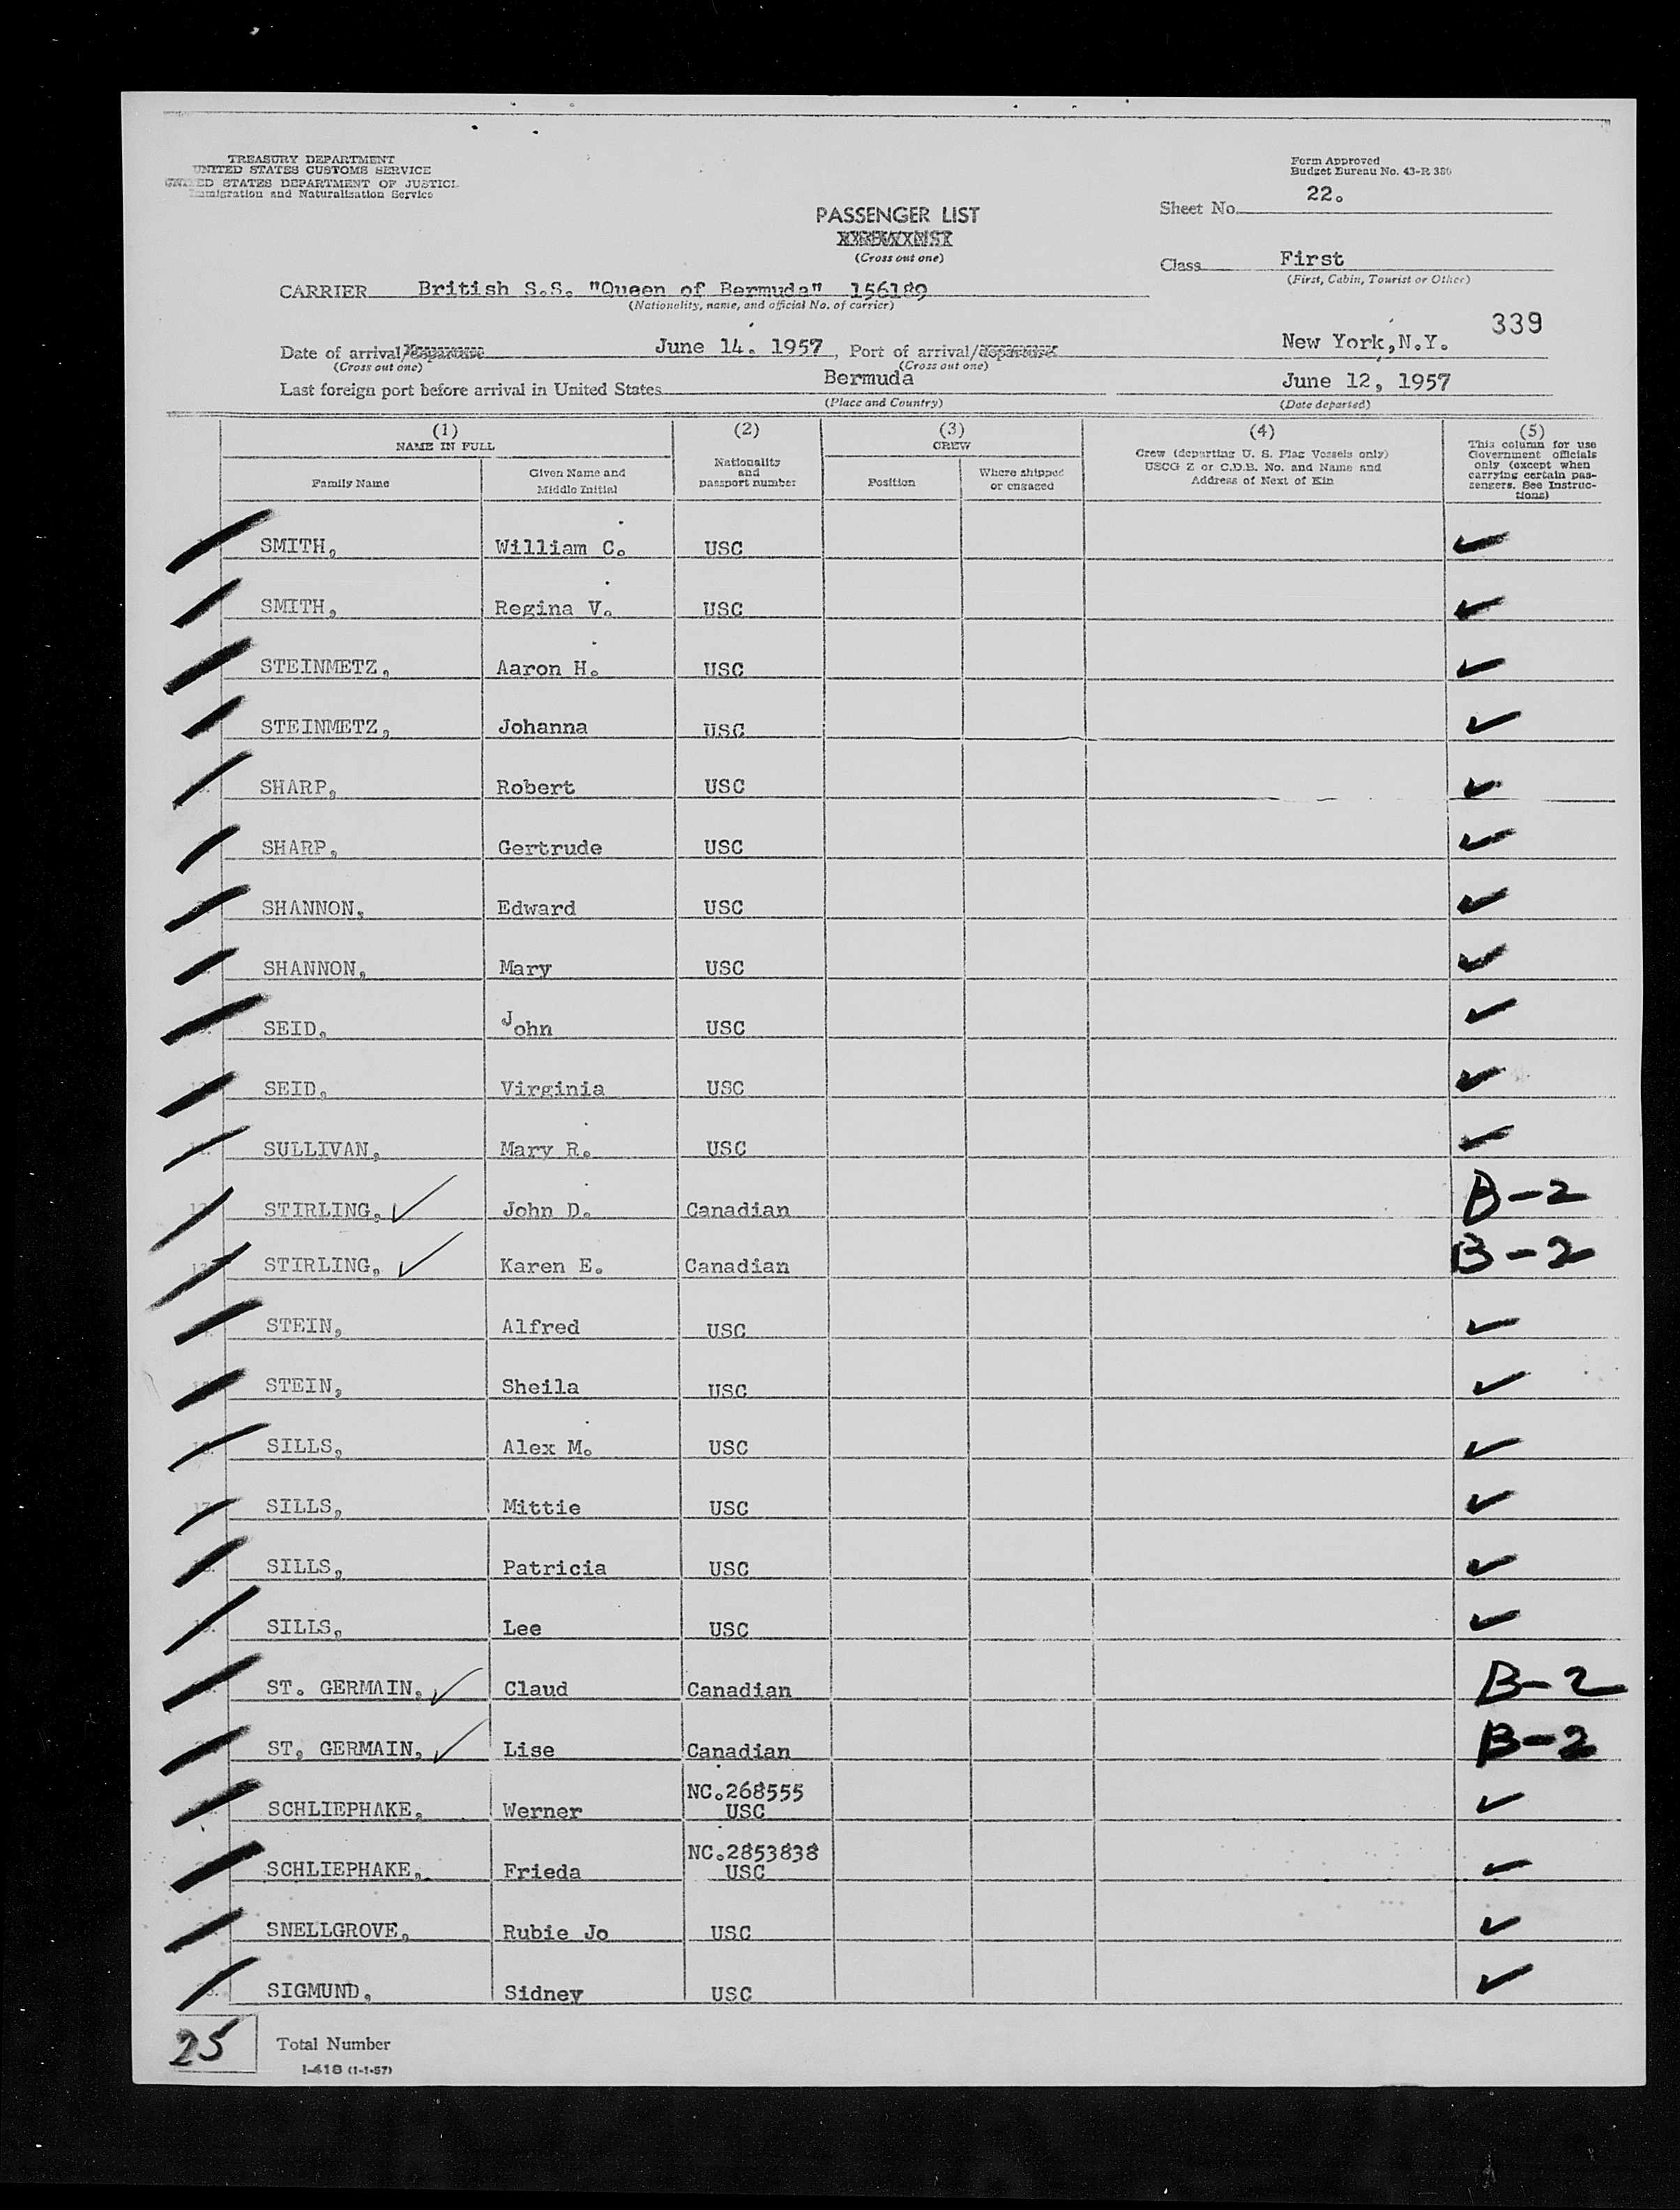 TREASURY DEPARTMENT
UNITED STATES CUSTOMS SERVICE
UNITED STATES DEPARTMENT OF JUSTICE
Immigration and Naturalization Service
Form Approved
Budget Bureau No. 43-R 380
Sheet No. 22.
PASSENGER LIST
(Cross out one)
Class First
(First, Cabin, Tourist or Other)
CARRIER British S.S. "Queen of Bermuda" 156189
(Nationality, name, and official No. of carrier)
339
Date of arrival/departure June 14. 1957, Port of arrival/departure New York,N.Y.
(Cross out one) (Cross out one)
Last foreign port before arrival in United States Bermuda June 12, 1957
(Place and Country) (Date departed)
(1) (2) (3) (4) (5)
NAME IN FULL
Family Name
Given Name and Middle Initial
Nationality and passport number
CREW
Position
Where shipped or engaged
Crew (departing U. S. Flag Vessels only)
USCG Z or C.D.B. No. and Name and
Address of Next of Kin
This column for use
Government officials
only (except when
carrying certain pas-
sengers. See Instruc-
tions)
SMITH, William C. USC ✓
SMITH, Regina V. USC ✓
STEINMETZ, Aaron H. USC ✓
STEINMETZ, Johanna USC ✓
SHARP, Robert USC ✓
SHARP, Gertrude USC ✓
SHANNON, Edward USC ✓
SHANNON, Mary USC ✓
SEID, John USC ✓
SEID, Virginia USC ✓
SULLIVAN, Mary R. USC ✓
STIRLING, ✓ John D. Canadian B-2
STIRLING, ✓ Karen E. Canadian B-2
STEIN, Alfred USC ✓
STEIN, Sheila USC ✓
SILLS, Alex M. USC ✓
17. SILLS, Mittie USC ✓
SILLS, Patricia USC ✓
SILLS, Lee USC ✓
ST. GERMAIN, ✓ Claud Canadian B-2
ST, GERMAIN, ✓ Lise Canadian B-2
NC.268555
SCHLIEPHAKE, Werner USC ✓
NC.2853838
SCHLIEPHAKE, Frieda USC ✓
SNELLGROVE, Rubie Jo USC ✓
SIGMUND, Sidney USC ✓
25 Total Number
I-418 (1-1-57)